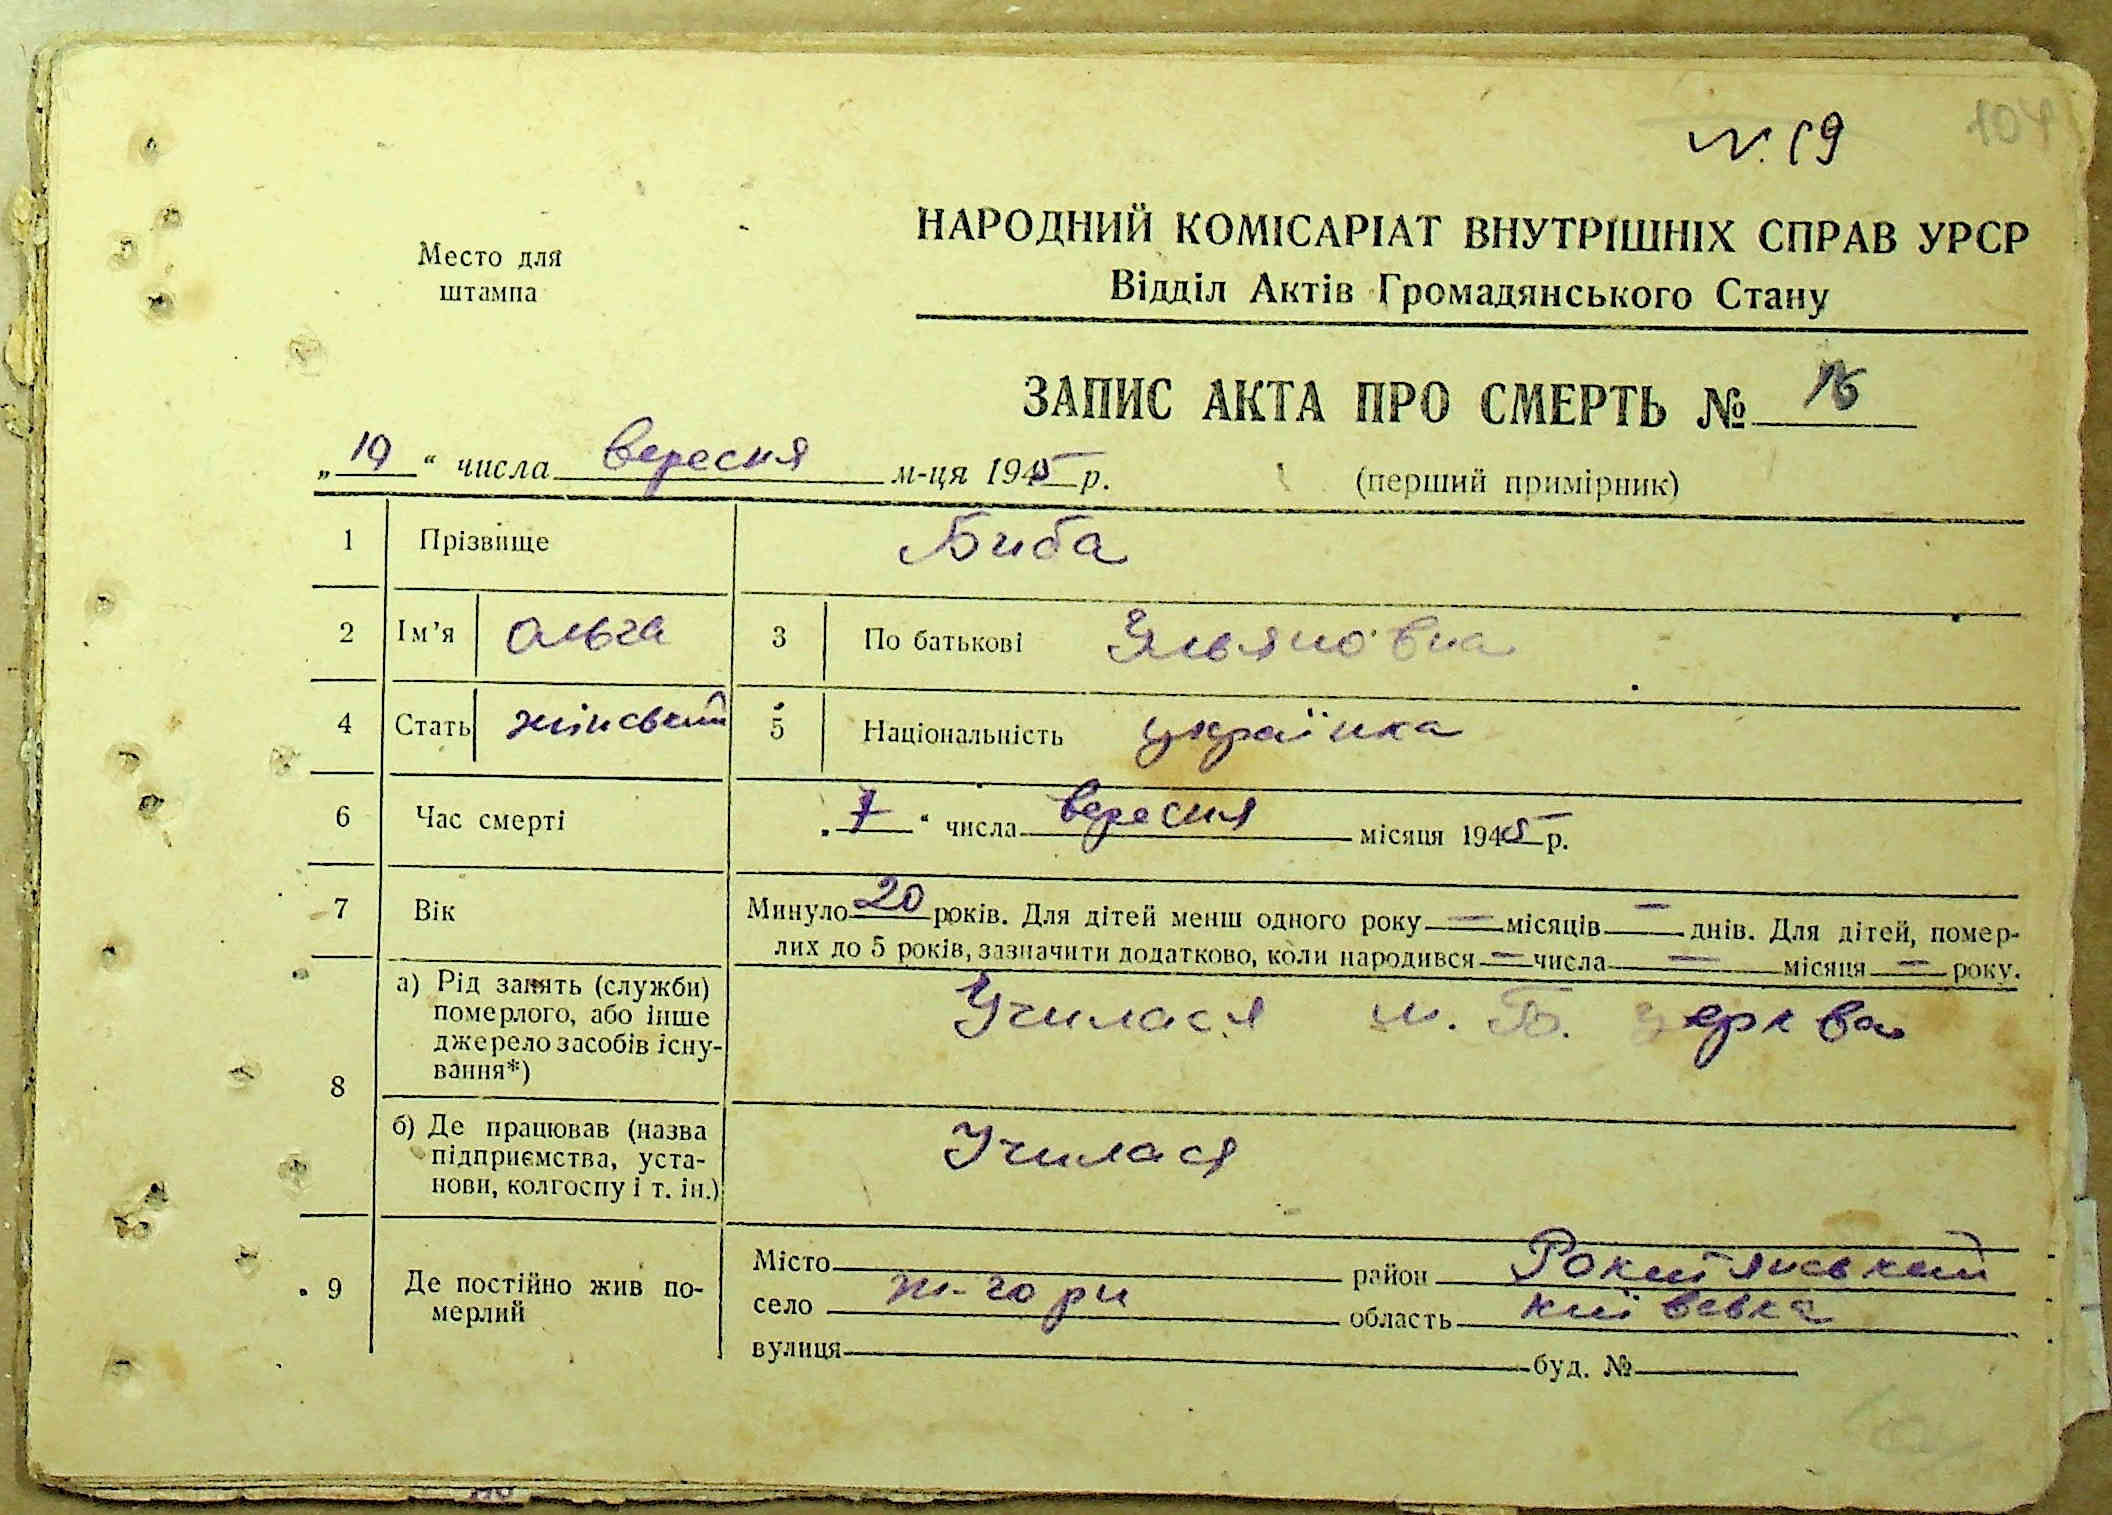 № 19
104
Место для
штампа
НАРОДНИЙ КОМІСАРІАТ ВНУТРІШНІХ СПРАВ УРСР
Відділ Актів Громадянського Стану
ЗАПИС АКТА ПРО СМЕРТЬ № 16
„19“ числа вересня м-ця 1945 р. (перший примірник)
1 Прізвище Биба
2 Ім’я Ольга 3 По батькові Ульяновна
4 Стать жінський 5 Національність українка
6 Час смерті „7“ числа вересня місяця 1945 р.
7 Вік Минуло 20 років. Для дітей менш одного року — місяців — днів. Для дітей, помер-
лих до 5 років, зазначити додатково, коли народився — числа — місяця — року.
8 а) Рід занять (служби)
померлого, або інше
джерело засобів існу-
вання*)
Училася м. Б. церква
б) Де працював (назва
підприємства, уста-
нови, колгоспу і т. ін.)
Училася
9 Де постійно жив по-
мерлий
Місто район Рокитянський
село гори область київська
вулиця буд. №